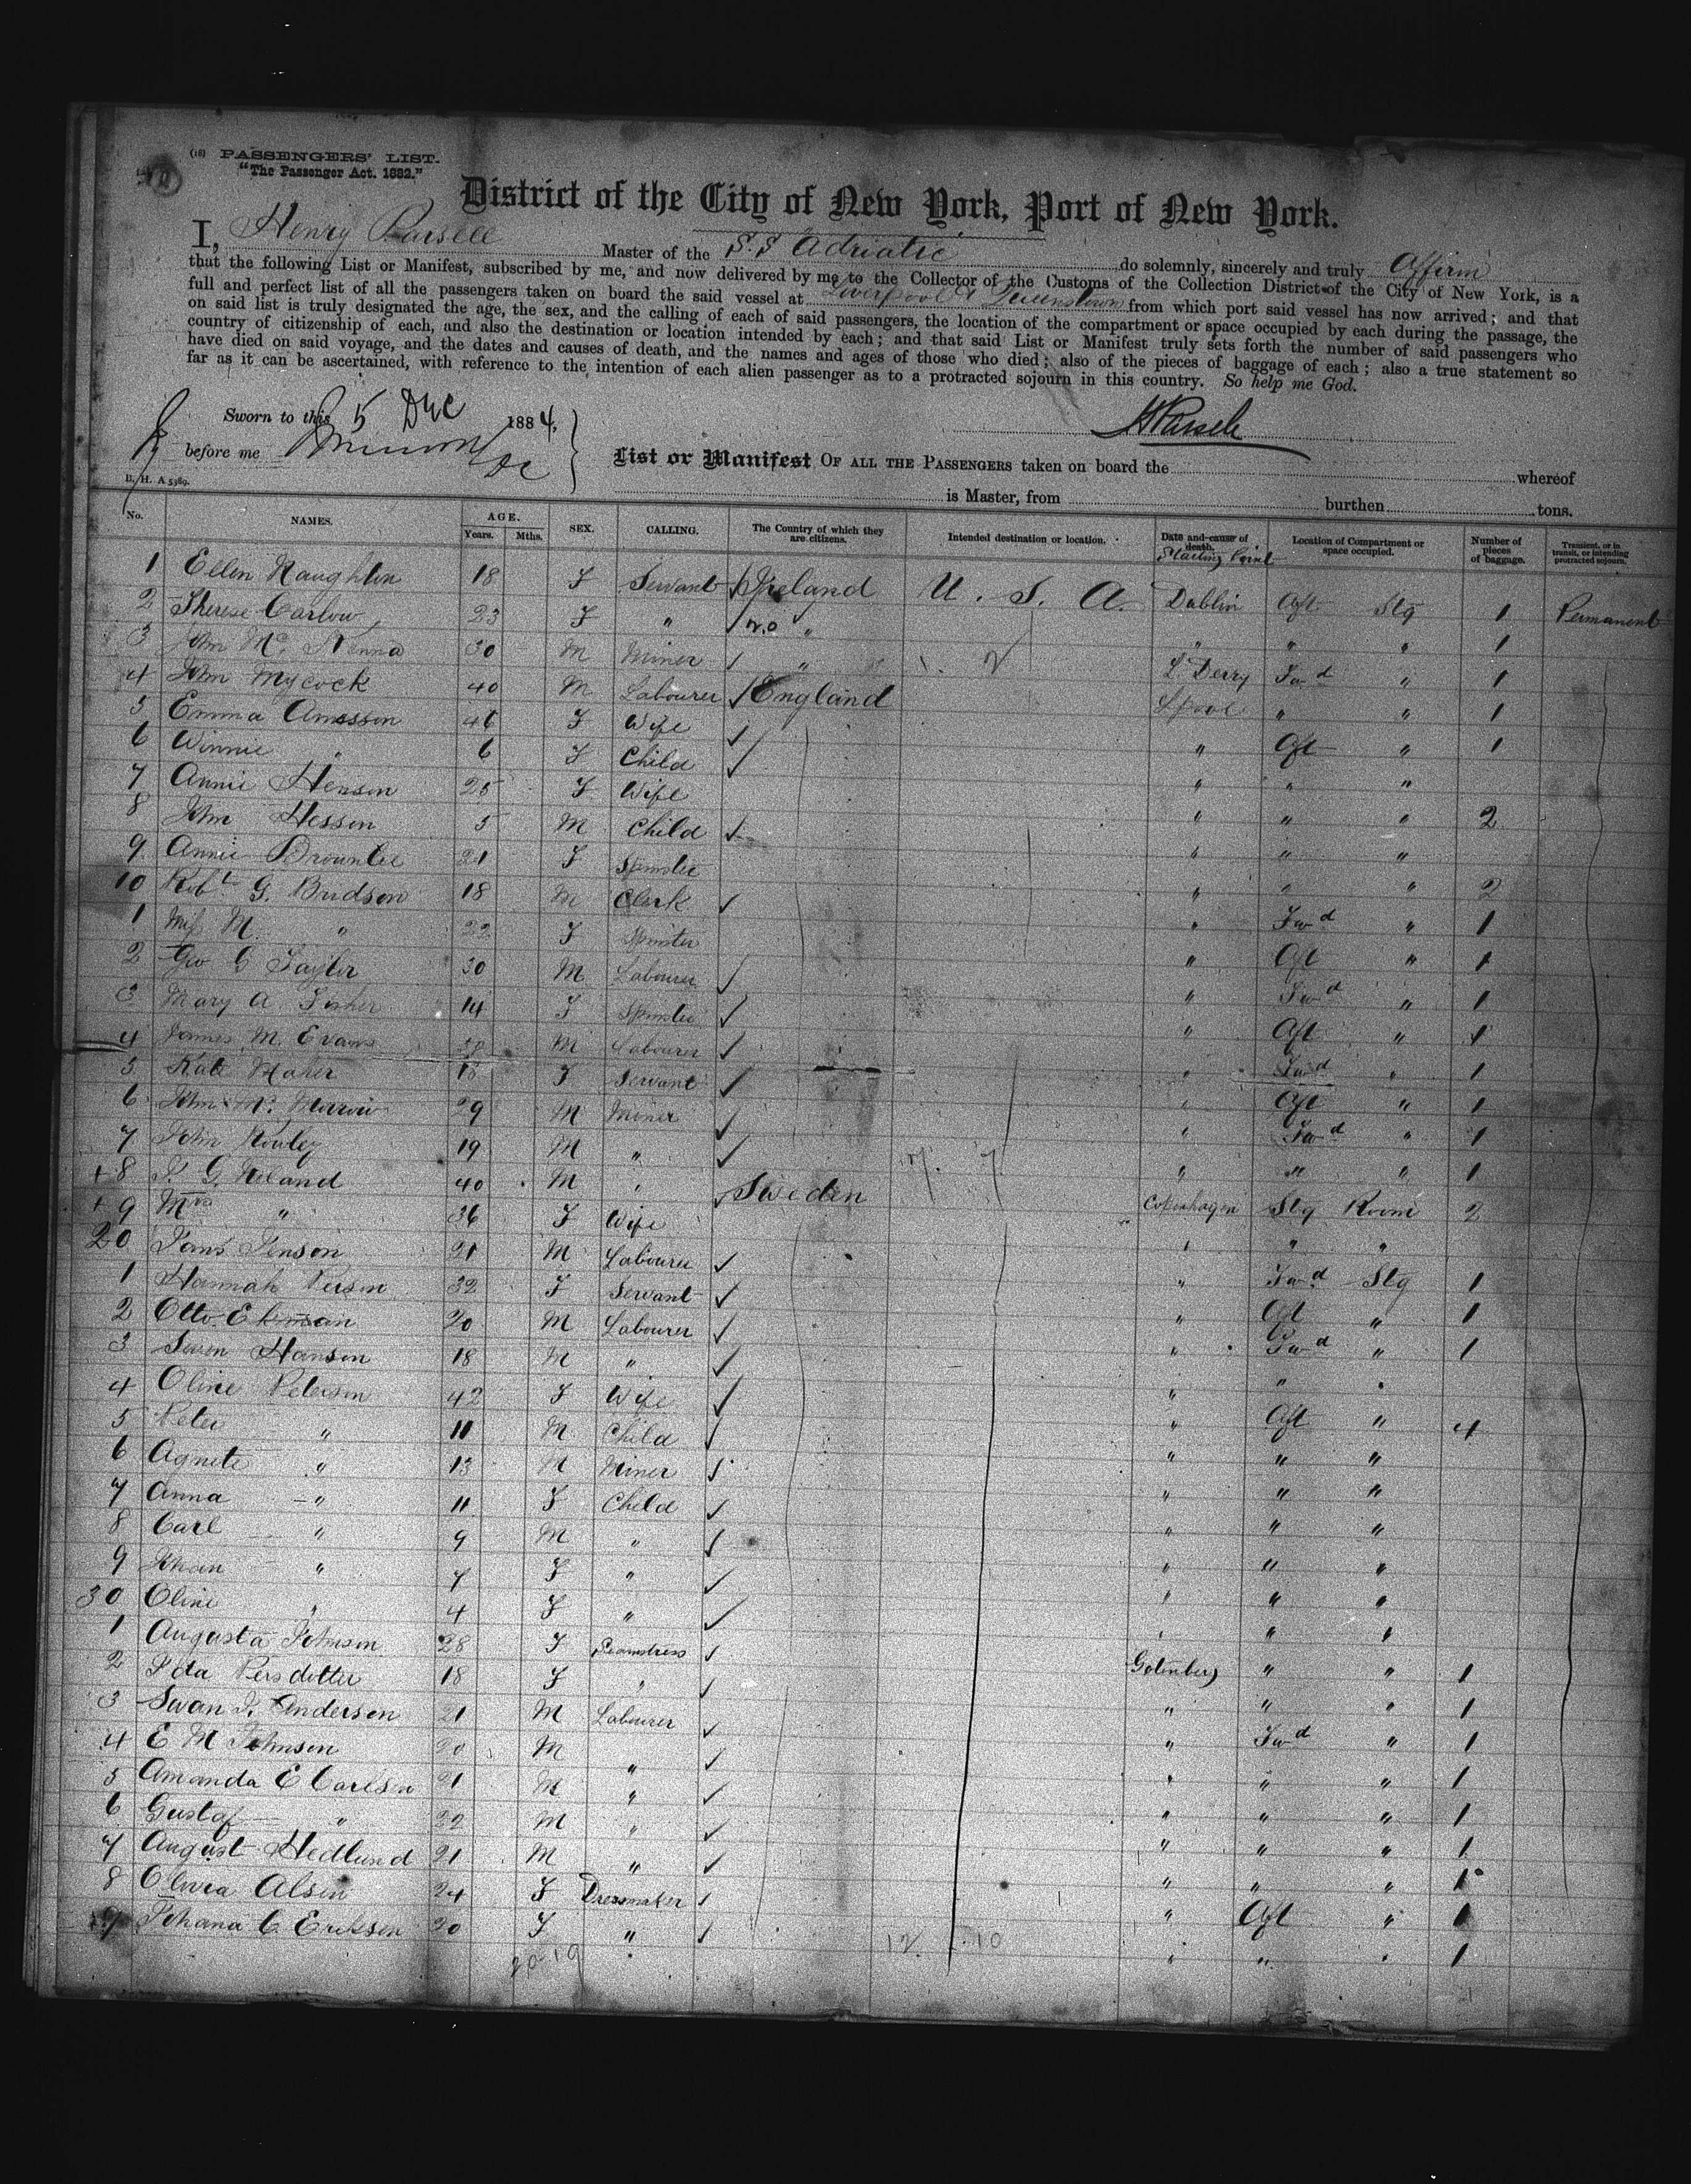 (18) PASSENGERS' LIST.
"The Passenger Act. 1882."
District of the City of New York, Port of New York.
I, Henry Parsell Master of the S.S Adriatic do solemnly, sincerely and truly Affirm
that the following List or Manifest, subscribed by me, and now delivered by me to the Collector of the Customs of the Collection District of the City of New York, is a
full and perfect list of all the passengers taken on board the said vessel at Liverpool & Queenstown from which port said vessel has now arrived; and that
on said list is truly designated the age, the sex, and the calling of each of said passengers, the location of the compartment or space occupied by each during the passage, the
country of citizenship of each, and also the destination or location intended by each; and that said List or Manifest truly sets forth the number of said passengers who
have died on said voyage, and the dates and causes of death, and the names and ages of those who died; also of the pieces of baggage of each; also a true statement so
far as it can be ascertained, with reference to the intention of each alien passenger as to a protracted sojourn in this country. So help me God.
Sworn to this 5 Dec 1884, HParsell
before me
List or Manifest OF ALL THE PASSENGERS taken on board the whereof
B. H. A 5369.
is Master, from burthen tons.
No. NAMES. AGE. Years. Mths. SEX. CALLING. The Country of which they are citizens. Intended destination or location. Date and cause of death. Starting Point Location of Compartment or space occupied. Number of pieces of baggage. Transient, or in transit, or intending protracted sojourn.
1 Ellen Naughten 18 F Servant Ireland U. S. A. Dublin Aft Stg 1 Permanent
2 Therese Carlow 23 F " " " " " 1
3 John Mc Kenna 30 M Miner " L. Derry Fwd " 1
4 John Mycock 40 M Labourer England Lpool " " 1
5 Emma Amsson 46 F Wife " Aft " 1
6 Winnie " 6 F Child " " "
7 Annie Henson 25 F Wife " " " 2
8 John Hesson 5 M Child " " "
9 Annie Brownlee 21 F Spinster " " " 2
10 Robt G. Bridson 18 M Clerk " Fwd " 1
1 Miss M. " 22 F Spinster " Aft " 1
2 Geo C Taylor 30 M Labourer " Fwd " 1
3 Mary A. Fisher 14 F Spinster " Aft " 1
4 James M. Evans M Labourer " Fwd " 1
5 Kate Maher 18 F Servant " Aft " 1
6 John 29 M Miner " Fwd " 1
7 John 19 M " " " " 1
8 40 M " Sweden Copenhagen Stg Room 2
9 Mrs " 36 F Wife " " "
20 Jans Jenson 21 M Labourer " Fwd Stg 1
1 Hannah Person 32 F Servant " Aft " 1
2 Otto Ekman 20 M Labourer " Fwd " 1
3 Hanson 18 M " " " "
4 Oline Peterson 42 F Wife " Aft " 4
5 Peter " 11 M Child " " "
6 Agnete " 13 M Miner " " "
7 Anna " 11 F Child " " "
8 Carl " 9 M " " " "
9 " 7 F " " " "
30 Oline " 4 F " " " "
1 Augusta Johnson 28 F Seamstress Gotenberg " " 1
2 Ida Persdotter 18 F " " " " 1
3 Swan J. Anderson 21 M Labourer " Fwd " 1
4 E M Johnson 20 M " " " " 1
5 Amanda E Carlson 21 M " " " " 1
6 Gustaf " 22 M " " " " 1
7 August Hedlund 21 M " " " " 1
8 Olivia Alsen 24 F Dressmaker " Aft " 1
9 Johana C. Erikson 20 F " " " " 1
20 19 12. 10